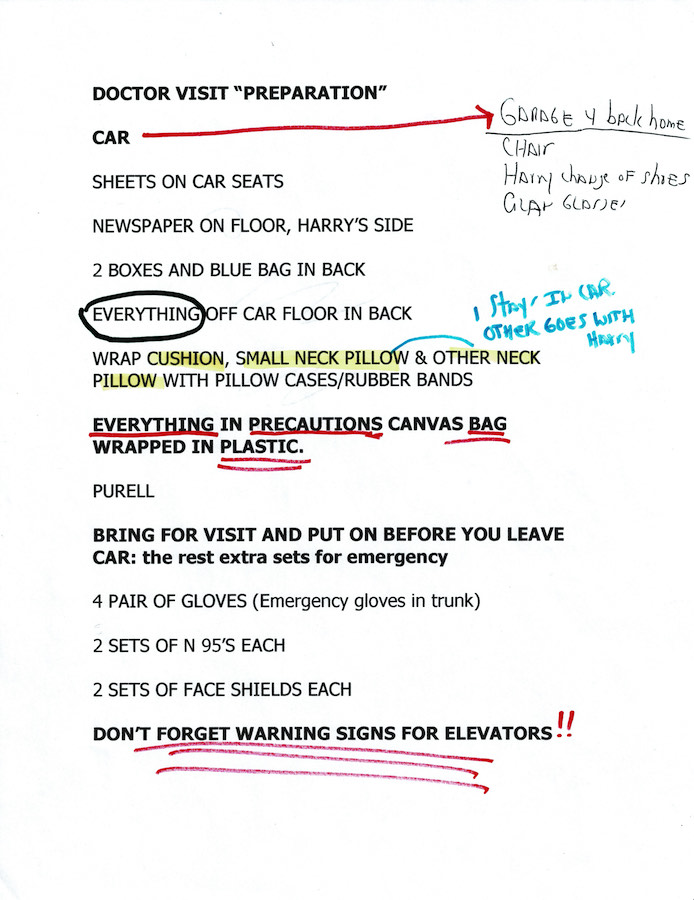 DOCTOR VISIT “PREPARATION”
CAR
GARAGE 4 back home
CHAIR
HARRY change OF SHOES
CLEAR GLASSES
SHEETS ON CAR SEATS
NEWSPAPER ON FLOOR, HARRY’S SIDE
2 BOXES AND BLUE BAG IN BACK
EVERYTHING OFF CAR FLOOR IN BACK
1 STAYS IN CAR
OTHER GOES WITH
HARRY
WRAP CUSHION, SMALL NECK PILLOW & OTHER NECK
PILLOW WITH PILLOW CASES/RUBBER BANDS
EVERYTHING IN PRECAUTIONS CANVAS BAG
WRAPPED IN PLASTIC.
PURELL
BRING FOR VISIT AND PUT ON BEFORE YOU LEAVE
CAR: the rest extra sets for emergency
4 PAIR OF GLOVES (Emergency gloves in trunk)
2 SETS OF N 95’S EACH
2 SETS OF FACE SHIELDS EACH
DON’T FORGET WARNING SIGNS FOR ELEVATORS!!